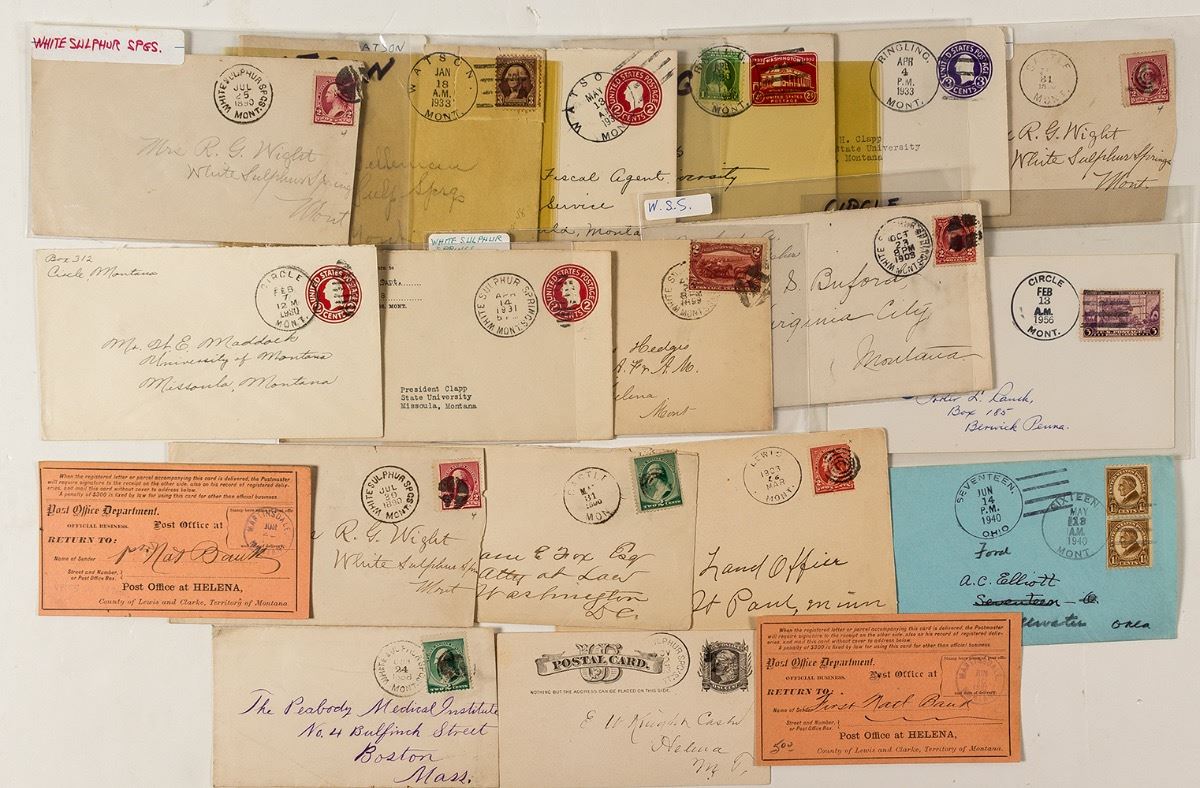 WHITE SULPHUR SPGS.
WHITE SULPHUR SPGS.
JUL
25
1890
MONT.
Mrs R. G. Wight
White Sulphur Spring
Mont
ATSON
Sulp. Sprgs
WATSON
JAN
18
A.M.
1933
MONT.
WATSO
MAY
A.M.
MON
UNITED STATES POSTAGE
2 CENTS 2
Fiscal Agent.
Service
MONT.
WASHINGTON
UNITED STATES POSTAGE
versity
Monta
RINGLING,
APR
4
P.M.
1933
MONT.
UNITED STATES POSTAGE
3 CENTS 3
H. Clapp
State University
Montana
CASTLE
31
MONT.
R. G. Wight
White Sulphur Springs
Mont.
Box 312
Circle Montana
CIRCLE
FEB
7
12 M
1930
MONT.
CENTS
University of Montana
Missoula, Montana
WHITE SULPHUR
SPRINGS
WHITE SULPHUR SPRINGS, MONT.
APR
14
1931
MONT.
UNITED STATES POSTAGE
2 CENTS 2
President Clapp
State University
Missoula, Montana
W.S.S.
Hedges
A.F. & A.M.
elena
Mont
CIRCLE
WHITE SULPHUR SPRINGS, MONT.
OCT
23
PM
1909
S. Buford
irginia City
Montana
CIRCLE
FEB
13
A.M.
1956
MONT.
Box 185
Berwick Penna.
When the registered letter or parcel accompanying this card is delivered, the Postmaster
will require signature to the receipt on the other side, also on his record of registered deliv-
eries, and mail this card without cover to address below.
A penalty of $300 is fixed by law for using this card for other than official business.
Post Office Department.
OFFICIAL BUSINESS.
Post Office at
RETURN TO:
Name of Sender
Street and Number,
or Post Office Box.
Post Office at HELENA,
County of Lewis and Clarke, Territory of Montana.
WHITE SULPHUR SPGS.
JUL
1890
MONT.
R. G. Wight
White Sulphur Spgs
Mont
31
MON
E Fox Esq
Atty at Law
Washington
D.C.
LEWIS
1903
MAR
MONT.
Land Officer
St Paul, Minn
SEVENTEEN,
JUN
14
P.M.
1940
OHIO
SIXTEEN
MAY
13
A.M.
1940
MONT.
Ford
A.C. Elliott
Seventeen - O.
llwater Okla
WHITE SULPHUR SPGS.
24
MONT.
The Peabody Medical Institute
No. 4 Bulfinch Street
Boston
Mass.
POSTAL CARD.
NOTHING BUT THE ADDRESS CAN BE PLACED ON THIS SIDE.
E W Knight Cash
Helena
M. T.
When the registered letter or parcel accompanying this card is delivered, the Postmaster
will require signature to the receipt on the other side, also on his record of registered deliv-
eries, and mail this card without cover to address below.
A penalty of $300 is fixed by law for using this card for other than official business.
Post Office Department.
OFFICIAL BUSINESS.
Post Office at
RETURN TO:
Name of Sender First Natl Bank
Street and Number,
or Post Office Box.
Post Office at HELENA,
County of Lewis and Clarke, Territory of Montana.